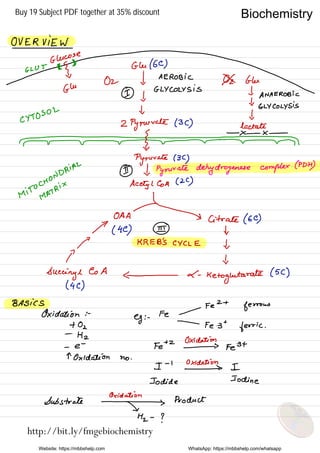 Buy 19 Subject PDF together at 35% discount
Biochemistry
OVERVIEW
Glucose
GLUT
Glu
Glu (6C)
O2
AEROBIC
GLYCOLYSIS
I
O2 Glu
ANAEROBIC
GLYCOLYSIS
lactate
CYTOSOL
2 Pyruvate (3C)
Pyruvate (3C)
II
Pyruvate dehydrogenase complex (PDH)
Acetyl CoA (2C)
MITOCHONDRIAL
MATRIX
OAA
(4C)
III
Citrate (6C)
KREB'S CYCLE
Succinyl CoA
(4C)
α- Ketoglutarate (5C)
BASICS
Oxidation :-
+ O2
- H2
- e-
↑ Oxidation no.
eg:- Fe
Fe2+ ferrous
Fe3+ ferric.
Fe+2 Oxidation Fe3+
I-1 Oxidation I
Iodide Iodine
Substrate Oxidation Product
H2 - ?
http://bit.ly/fmgebiochemistry
Website: https://mbbshelp.com WhatsApp: https://mbbshelp.com/whatsapp